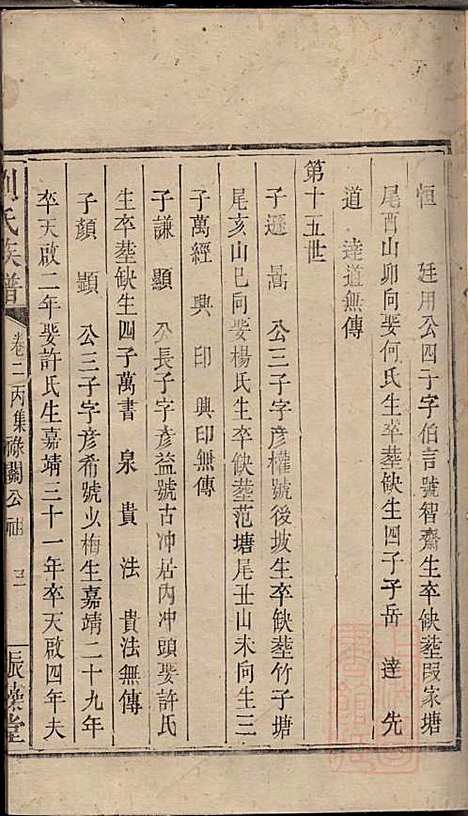 恒　廷用公四子字伯言號智齋生卒缺塟叚家塘
尾酉山卯向娶何氏生卒塟缺生四子子岳　達　先
道　達道無傳
第十五世
子遜　暠　公三子字彦權號後坡生卒缺塟竹子塘
尾亥山巳向娶楊氏生卒缺塟范塘尾丑山未向生三
子萬經　典　印　典印無傳
子謙　顯　公長子字彦益號古冲居内冲頭娶許氏
生卒塟缺生四子萬書　泉　貴　法　貴法無傳
子顏　顯　公三子字彦希號少梅生嘉靖二十九年
卒天啟二年娶許氏生嘉靖三十一年卒天啟四年夫
氏族譜　卷二丙集　祿閣公社　三　振藻堂